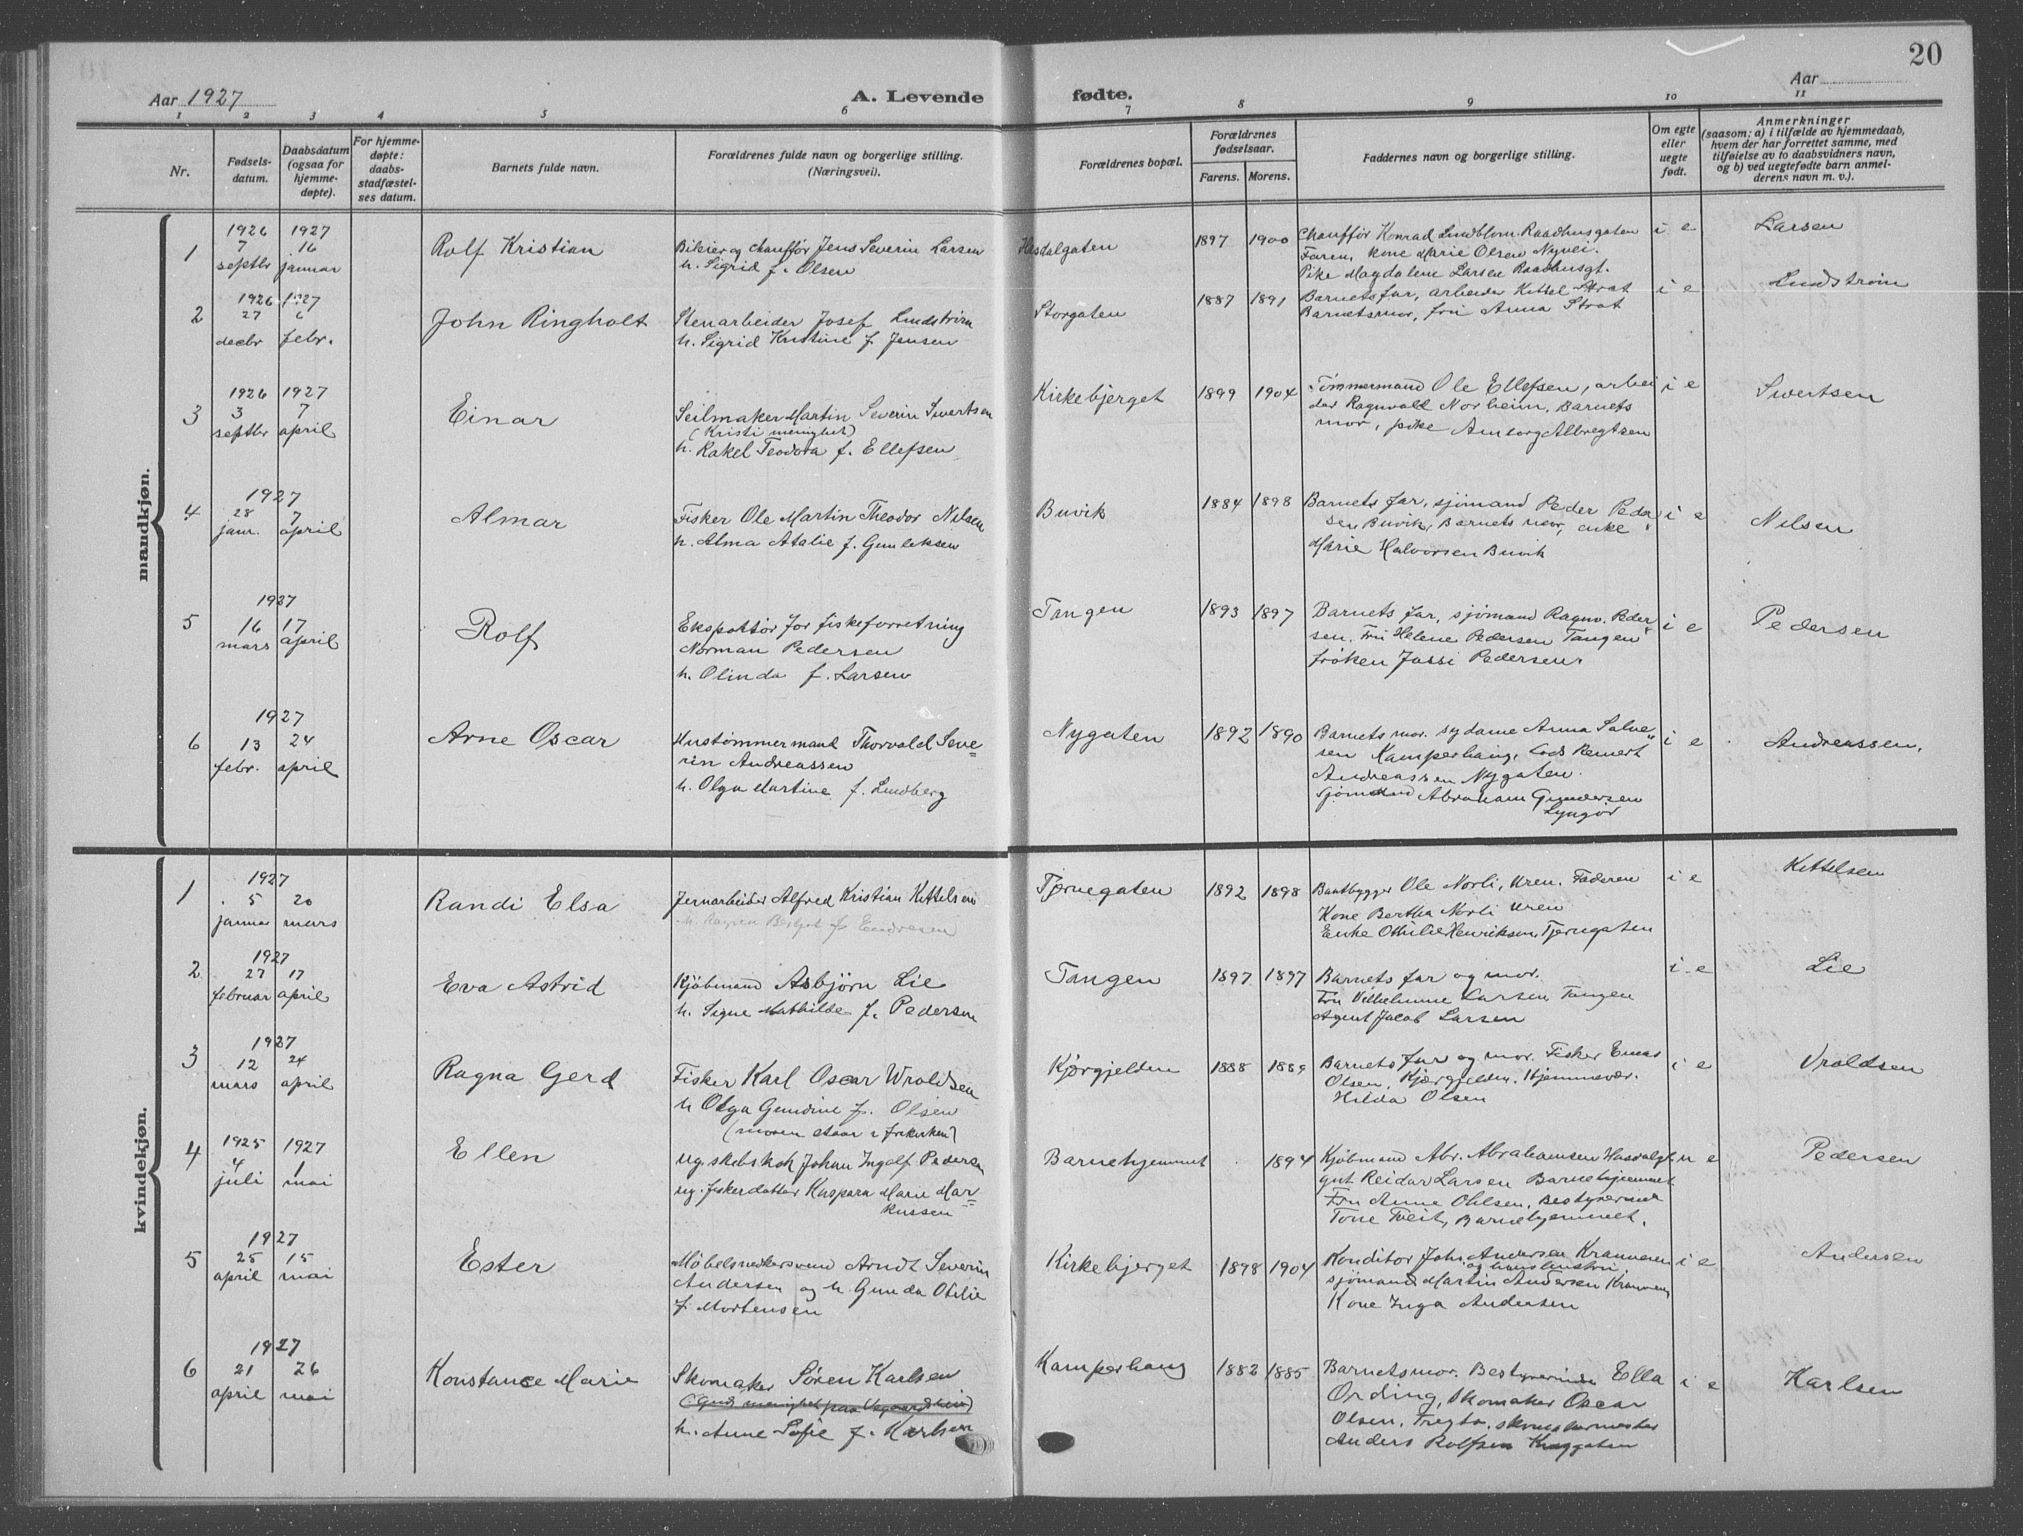 20
Aar 1927
A. Levende
fødte.
Aar
1 2 3 4 5 6 7 8 9 10 11
Nr.
Fødsels-
datum.
Daabsdatum
(ogsaa for
hjemme-
døpte).
For hjemme-
døpte:
daabs-
stadfæstel-
ses datum.
Barnets fulde navn.
Forældrenes fulde navn og borgerlige stilling.
(Næringsvei).
Forældrenes bopæl.
Forældrenes
fødselsaar.
Farens. Morens.
Faddernes navn og borgerlige stilling.
Om egte
eller
uegte
født.
Anmerkninger
(saasom: a) i tilfælde av hjemmedaab,
hvem der har forrettet samme, med
tilføielse av to daabsvidners navn,
og b) ved uegtefødte barn anmel-
derens navn m. v.).
mandkjøn.
1
1926 7 septbr
1927 16 januar
Rolf Kristian
Bileier og chauffør Jens Severin Larsen
h. Sigrid f. Olsen
Hasdalgaten
1897 1900
Chauffør Konrad Lindblom Raadhusgaten
Faren, kone Marie Olsen Nyvei.
Pike Magdalene Larsen Raadhusgt.
i e
Larsen
2
1926 27 decbr
1927 6 febr.
John Ringholt
Stenarbeider Josef Lindstrøm
h. Sigrid Kristine f. Jensen
Storgaten
1887 1891
Barnets far, arbeider Kittel Strat
Barnetsmor, fru Anna Strat
i e
Lindstrøm
3
1926 3 septbr
1927 7 april
Einar
Seilmaker Martin Severin Sivertsen
(Kristi menighet)
h. Rakel Teodora f. Ellefsen
Kirkebjerget
1899 1904
Tømmermand Ole Ellefsen, arbei
der Ragnvald Norheim, Barnets
mor, pike Albregtsen
i e
Sivertsen
4
1927
28 janr.
7 april
Almar
Fisker Ole Martin Theodor Nilsen
h. Alma Atalie f. Gunleksen
Buvik
1884 1898
Barnets far, sjømand Peder Peder
sen Buvik, Barnets mor, enke
Marie Halvorsen Buvik
i e
Nilsen
5
1927
16 mars
17 april
Rolf
Ekspeditør for fiskeforretning
Norman Pedersen
h. Olinda f. Larsen
Tangen
1893 1897
Barnets far, sjømand Ragnv. Peder
sen. Fru Helene Pedersen Tangen
frøken Jossi Pedersen.
i e
Pedersen
6
1927
13 febr.
24 april
Arne Oscar
Hustømmermand Thorvald Seve=
rin Andreassen
h. Olga Martine f. Lindberg
Nygaten
1892 1890
Barnets mor. sydame Anna Salve"
sen Kamperhaug, Lods Reinert
Andreassen Nygaten.
sjømand Abraham Gundersen
Lyngør
i e
Andreassen.
kvindekjøn.
1
1927
5 januar
20 mars
Randi Elsa
Jernarbeider Alfred Kristian Kittelsen
h. Ragna Borgot f. Endresen
Tjernegaten
1892 1898
Baatbygger Ole Norli, Uren. Faderen
Kone Bertha Norli Uren
Enke Othilie Henriksen, Tjernegaten
i e
Kittelsen
2
1927
27 februar
17 april
Eva Astrid
Kjøbmand Asbjørn Lie
h. Signe Mathilde f. Pedersen
Tangen
1897 1897
Barnets far og mor.
Fru Vilhelmine Larsen Tangen
Agent Jacob Larsen
i e
Lie
3
1927
12 mars
24 april
Ragna Gerd
Fisker Karl Oscar Wroldsen
h Olga Gundine f. Olsen
(moren staar i frikirken)
Kjørgjelden
1888 1889
Barnets far og mor. Fisker Enas
Olsen, Kjørgjelden. Hjemmevær.
Hilda Olsen
i e
Vroldsen
4
1925 4 juli
1927 1 mai
Ellen
ug. skibskok Johan Ingolf Pedersen
ug. fiskerdatter Kaspara Marie Mar=
kussen
Barnehjemmet
1894
Kjøbmand Abr. Abrahamsen Hasdalgt
gut Reidar Larsen Barnehjemmet
Fru Anne Ohlsen, Bestyrerinde
Tone Tveit, Barnehjemmet.
u e
Pedersen
5
1927
25 april
15 mai
Ester
Møbelsnekkersvend Arndt Severin
Andersen og h. Gunda Otilie
f. Mortensen
Kirkebjerget
1898 1904
Konditor Joh. Andersen Kranveien
og hans hustru,
sjømand Martin Andersen Kranvei
Kone Inga Andersen
i e
Andersen
6
1927
21 april
26 mai
Konstance Marie
Skomaker Søren Karlsen
(Guds menighet paa Vegaardsheia)
h. Anne Sofie f. Karlsen
Kamperhaug
1882 1885
Barnetsmor. Bestyrerinde Ella
Ording, Skomaker Oscar
Olsen, Tregta,
Anders Rolfsen Kraggaten
i e
Karlsen